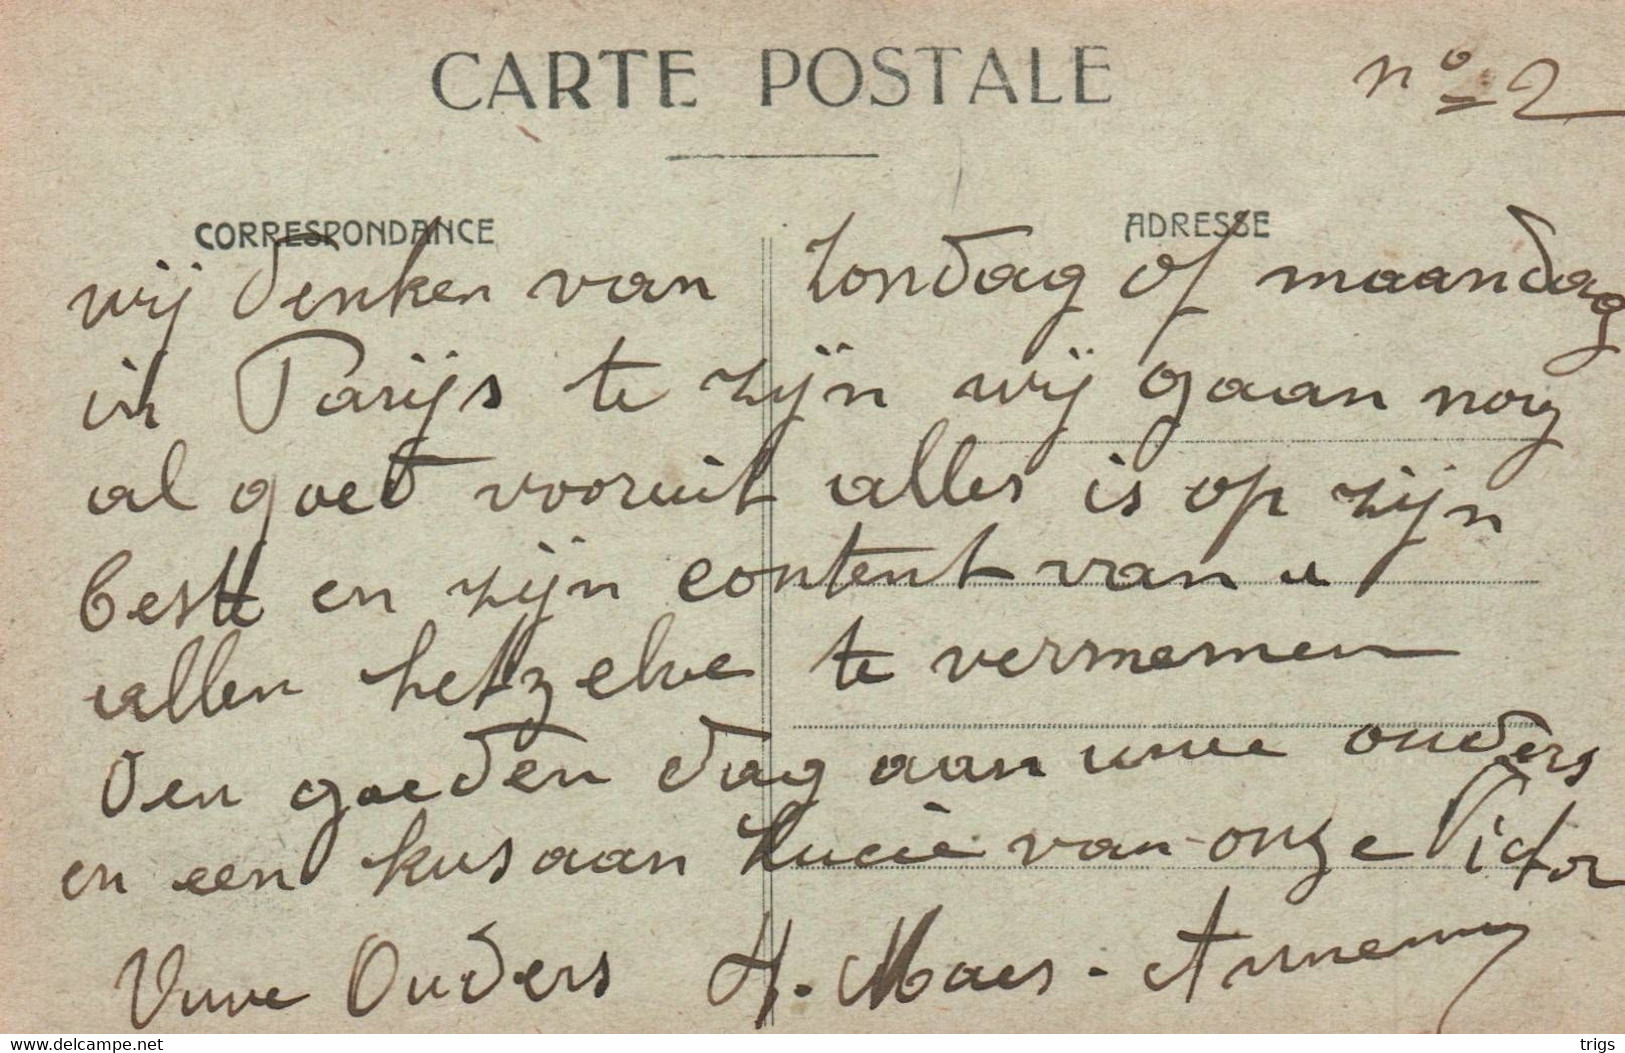 CARTE POSTALE
nº 2
CORRESPONDANCE
ADRESSE
wij denken van zondag of maandag
in Parijs te zijn wij gaan nog
al goed vooruit alles is op zijn
beste en zijn content van u
allen hetzelve te vernemen
den goeden dag aan uwe ouders
en een kus aan Lucie van onze Victor
Uwe Ouders H. Maes -
www.delcampe.net
trigs